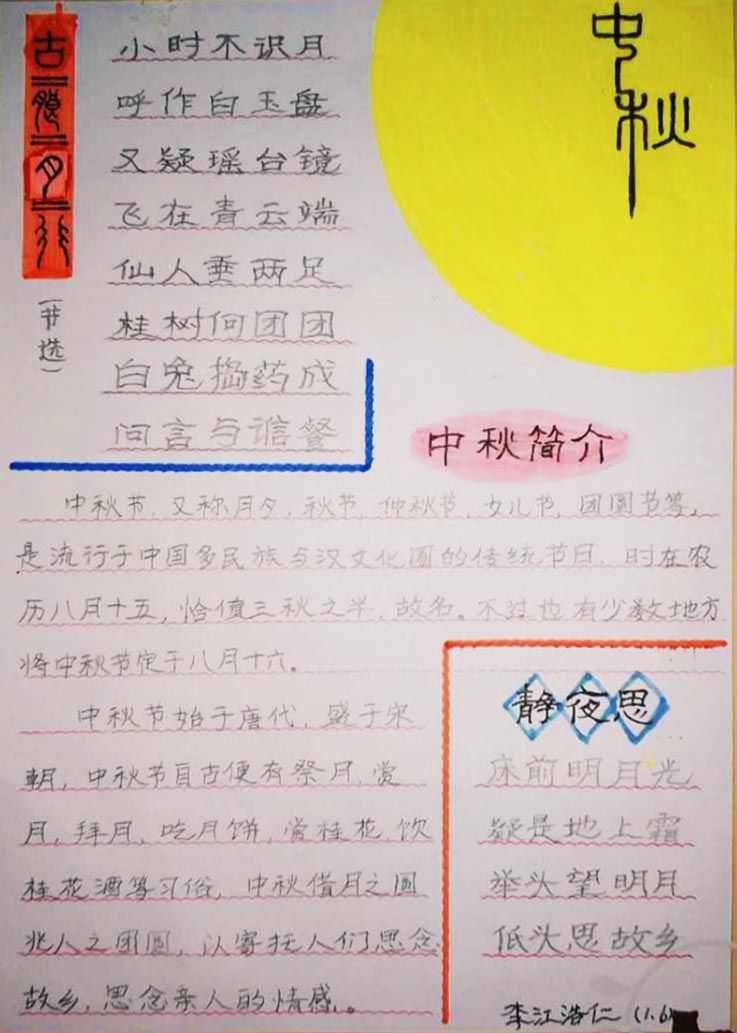 古朗月行
(节选)
小时不识月
呼作白玉盘
又疑瑶台镜
飞在青云端
仙人垂两足
桂树何团团
白兔捣药成
问言与谁餐
中秋
中秋简介
中秋节,又称月夕,秋节,仲秋节,女儿节,团圆节等,
是流行于中国多民族与汉文化圈的传统节日,时在农
历八月十五,恰值三秋之半,故名。不过也有少数地方
将中秋节定于八月十六。
中秋节始于唐代,盛于宋
朝,中秋节自古便有祭月,赏
月,拜月,吃月饼,赏桂花,饮
桂花酒等习俗,中秋借月之圆
兆人之团圆,以寄托人们思念
故乡,思念亲人的情感。
静夜思
床前明月光
疑是地上霜
举头望明月
低头思故乡
李江浩仁 (1.6)